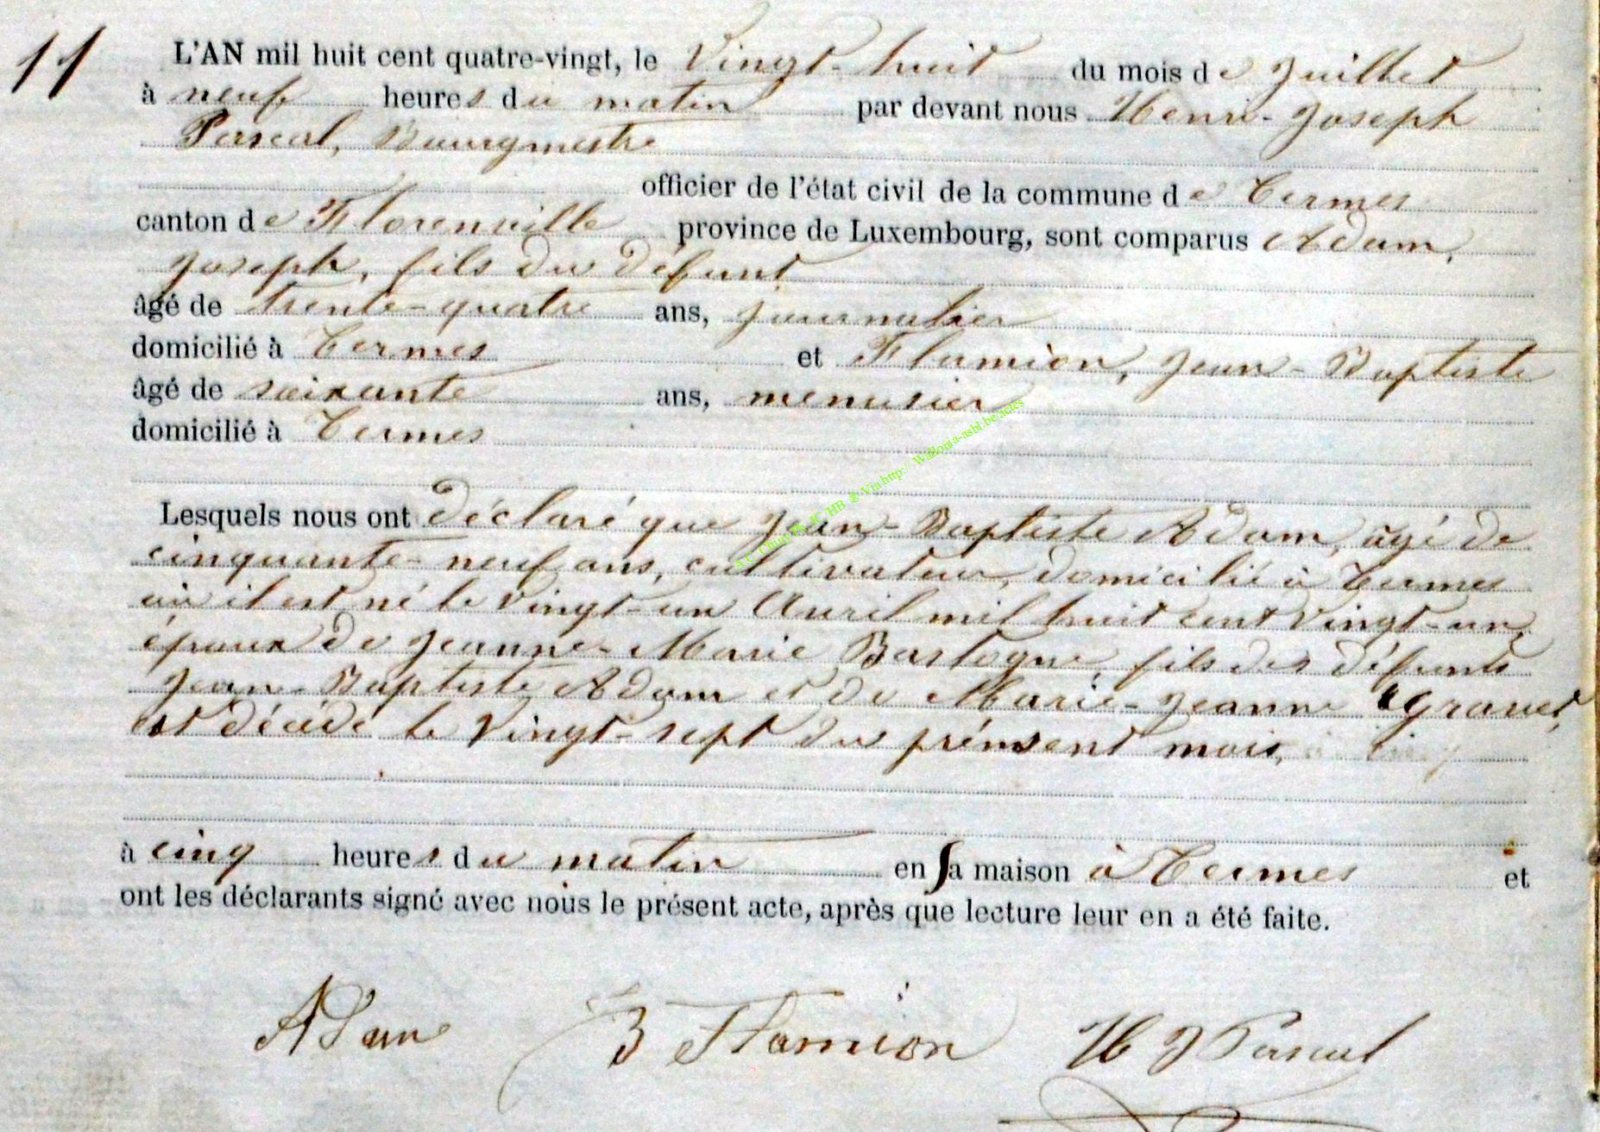 11
L'AN mil huit cent quatre-vingt, le Vingt-huit du mois de Juillet
à neuf heures du matin par devant nous Henri-Joseph
Pascal, Bourgmestre
officier de l'état civil de la commune de Termes
canton de Florenville province de Luxembourg, sont comparus Adam,
Joseph, fils du défunt
âgé de trente-quatre ans, journalier
domicilié à Termes et Flamion, Jean-Baptiste
âgé de soixante ans, menusier
domicilié à Termes
Lesquels nous ont déclaré que Jean-Baptiste Adam, âgé de
cinquante-neuf ans, cultivateur, domicilié à Termes
où il est né le vingt-un Avril mil huit cent vingt-un,
époux de Jeanne-Marie Bastogne, fils des défunts
Jean-Baptiste Adam et de Marie-Jeanne Gravet,
est décédé le vingt-sept du présent mois,
à cinq heures du matin en sa maison à Termes et
ont les déclarants signé avec nous le présent acte, après que lecture leur en a été faite.
Adam JB Flamion HJ Pascal